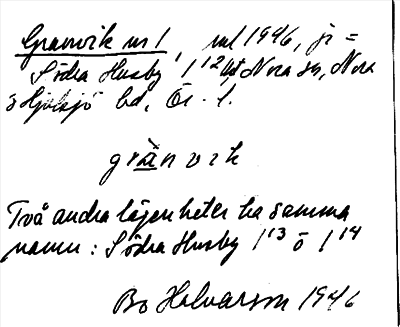 Granvik nr 1, ägl 1946, ji =
Södra Husby 1¹² i Nora sn, Nora
o Hjulsjö bd, Ör. l.
grä̀n vik
Två andra lägenheter ha samma
namn: Södra Husby 1¹³ o 1¹⁴
Bo Halvarson 1946